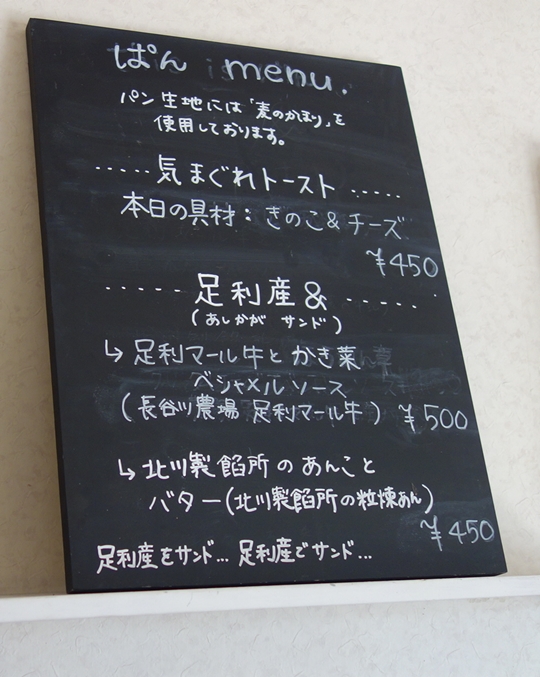 ぱん menu.
パン生地には「麦のかほり」を
使用しております。
.....気まぐれトースト.....
本日の具材：きのこ&チーズ
¥450
.....足利産&.....
(あしかが サンド)
↳足利マール牛とかき菜
ベシャメルソース
(長谷川農場 足利マール牛) ¥500
↳北川製餡所のあんこと
バター(北川製餡所の粒煉あん)
¥450
足利産をサンド...足利産でサンド...